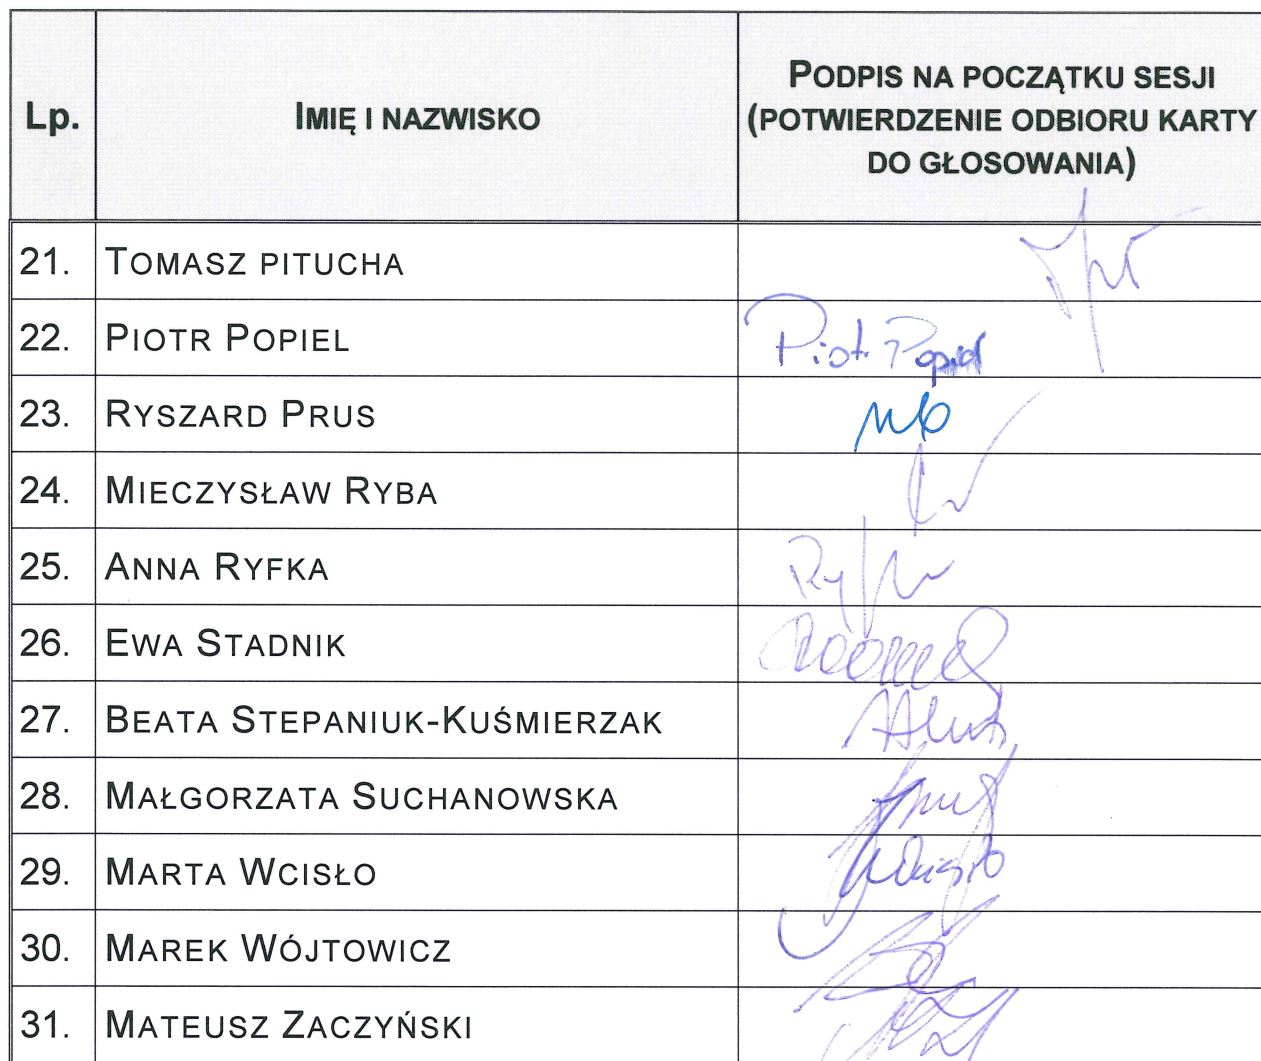 Lp. IMIĘ I NAZWISKO PODPIS NA POCZĄTKU SESJI
(POTWIERDZENIE ODBIORU KARTY
DO GŁOSOWANIA)
21. TOMASZ PITUCHA
22. PIOTR POPIEL Piotr Popiel
23. RYSZARD PRUS
24. MIECZYSŁAW RYBA
25. ANNA RYFKA
26. EWA STADNIK
27. BEATA STEPANIUK-KUŚMIERZAK
28. MAŁGORZATA SUCHANOWSKA
29. MARTA WCISŁO Wcisło
30. MAREK WÓJTOWICZ
31. MATEUSZ ZACZYŃSKI